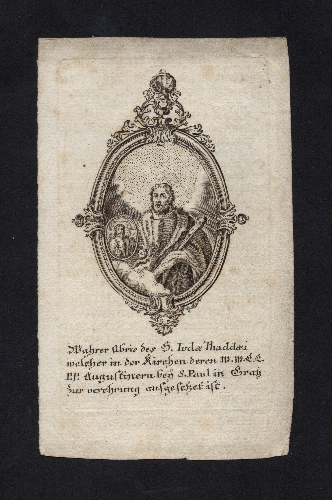 Wahrer Abris des S. Iudæ Thaddæi
welcher in der Kirchen deren W.W.E.E.
P.P. Augustinern beÿ S. Paul in Gratz
zur verehrung ausgesetzt ist.